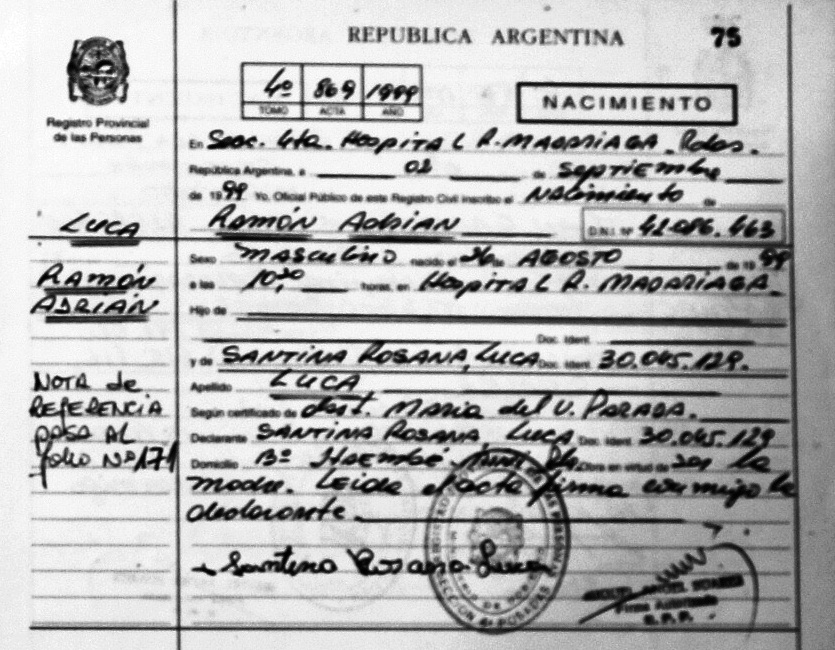 REPUBLICA ARGENTINA
75
4º 869 1999
TOMO ACTA AÑO
NACIMIENTO
Registro Provincial
de las Personas
En Secc. 4ta. Hospital R. MADARIAGA. Pdas.
República Argentina, a 02 de Septiembre
de 1999 Yo, Oficial Público de este Registro Civil inscribo el Nacimiento de
RAMÓN ADRIAN D.N.I. Nº 42.086.463
LUCA
RAMÓN
ADRIÁN
Sexo masculino nacido el de AGOSTO de 1999
a las 10,20 horas, en Hospital R. MADARIAGA.
Hijo de
Doc. Ident.
y de SANTINA ROSANA, LUCA Doc. Ident. 30.045.129.
Apellido LUCA
Según certificado de obst. Maria del V. PARADA.
Declarante SANTINA ROSANA, LUCA Doc. Ident. 30.045.129
Domicilio Bº Obra en virtud de ser la
madre. Leida el acta firma conmigo la
declarante.
NOTA de
REFERENCIA
PASA AL
folio Nº 171
Santina Rosana Luca
Firma Autorizada
R.P.P.